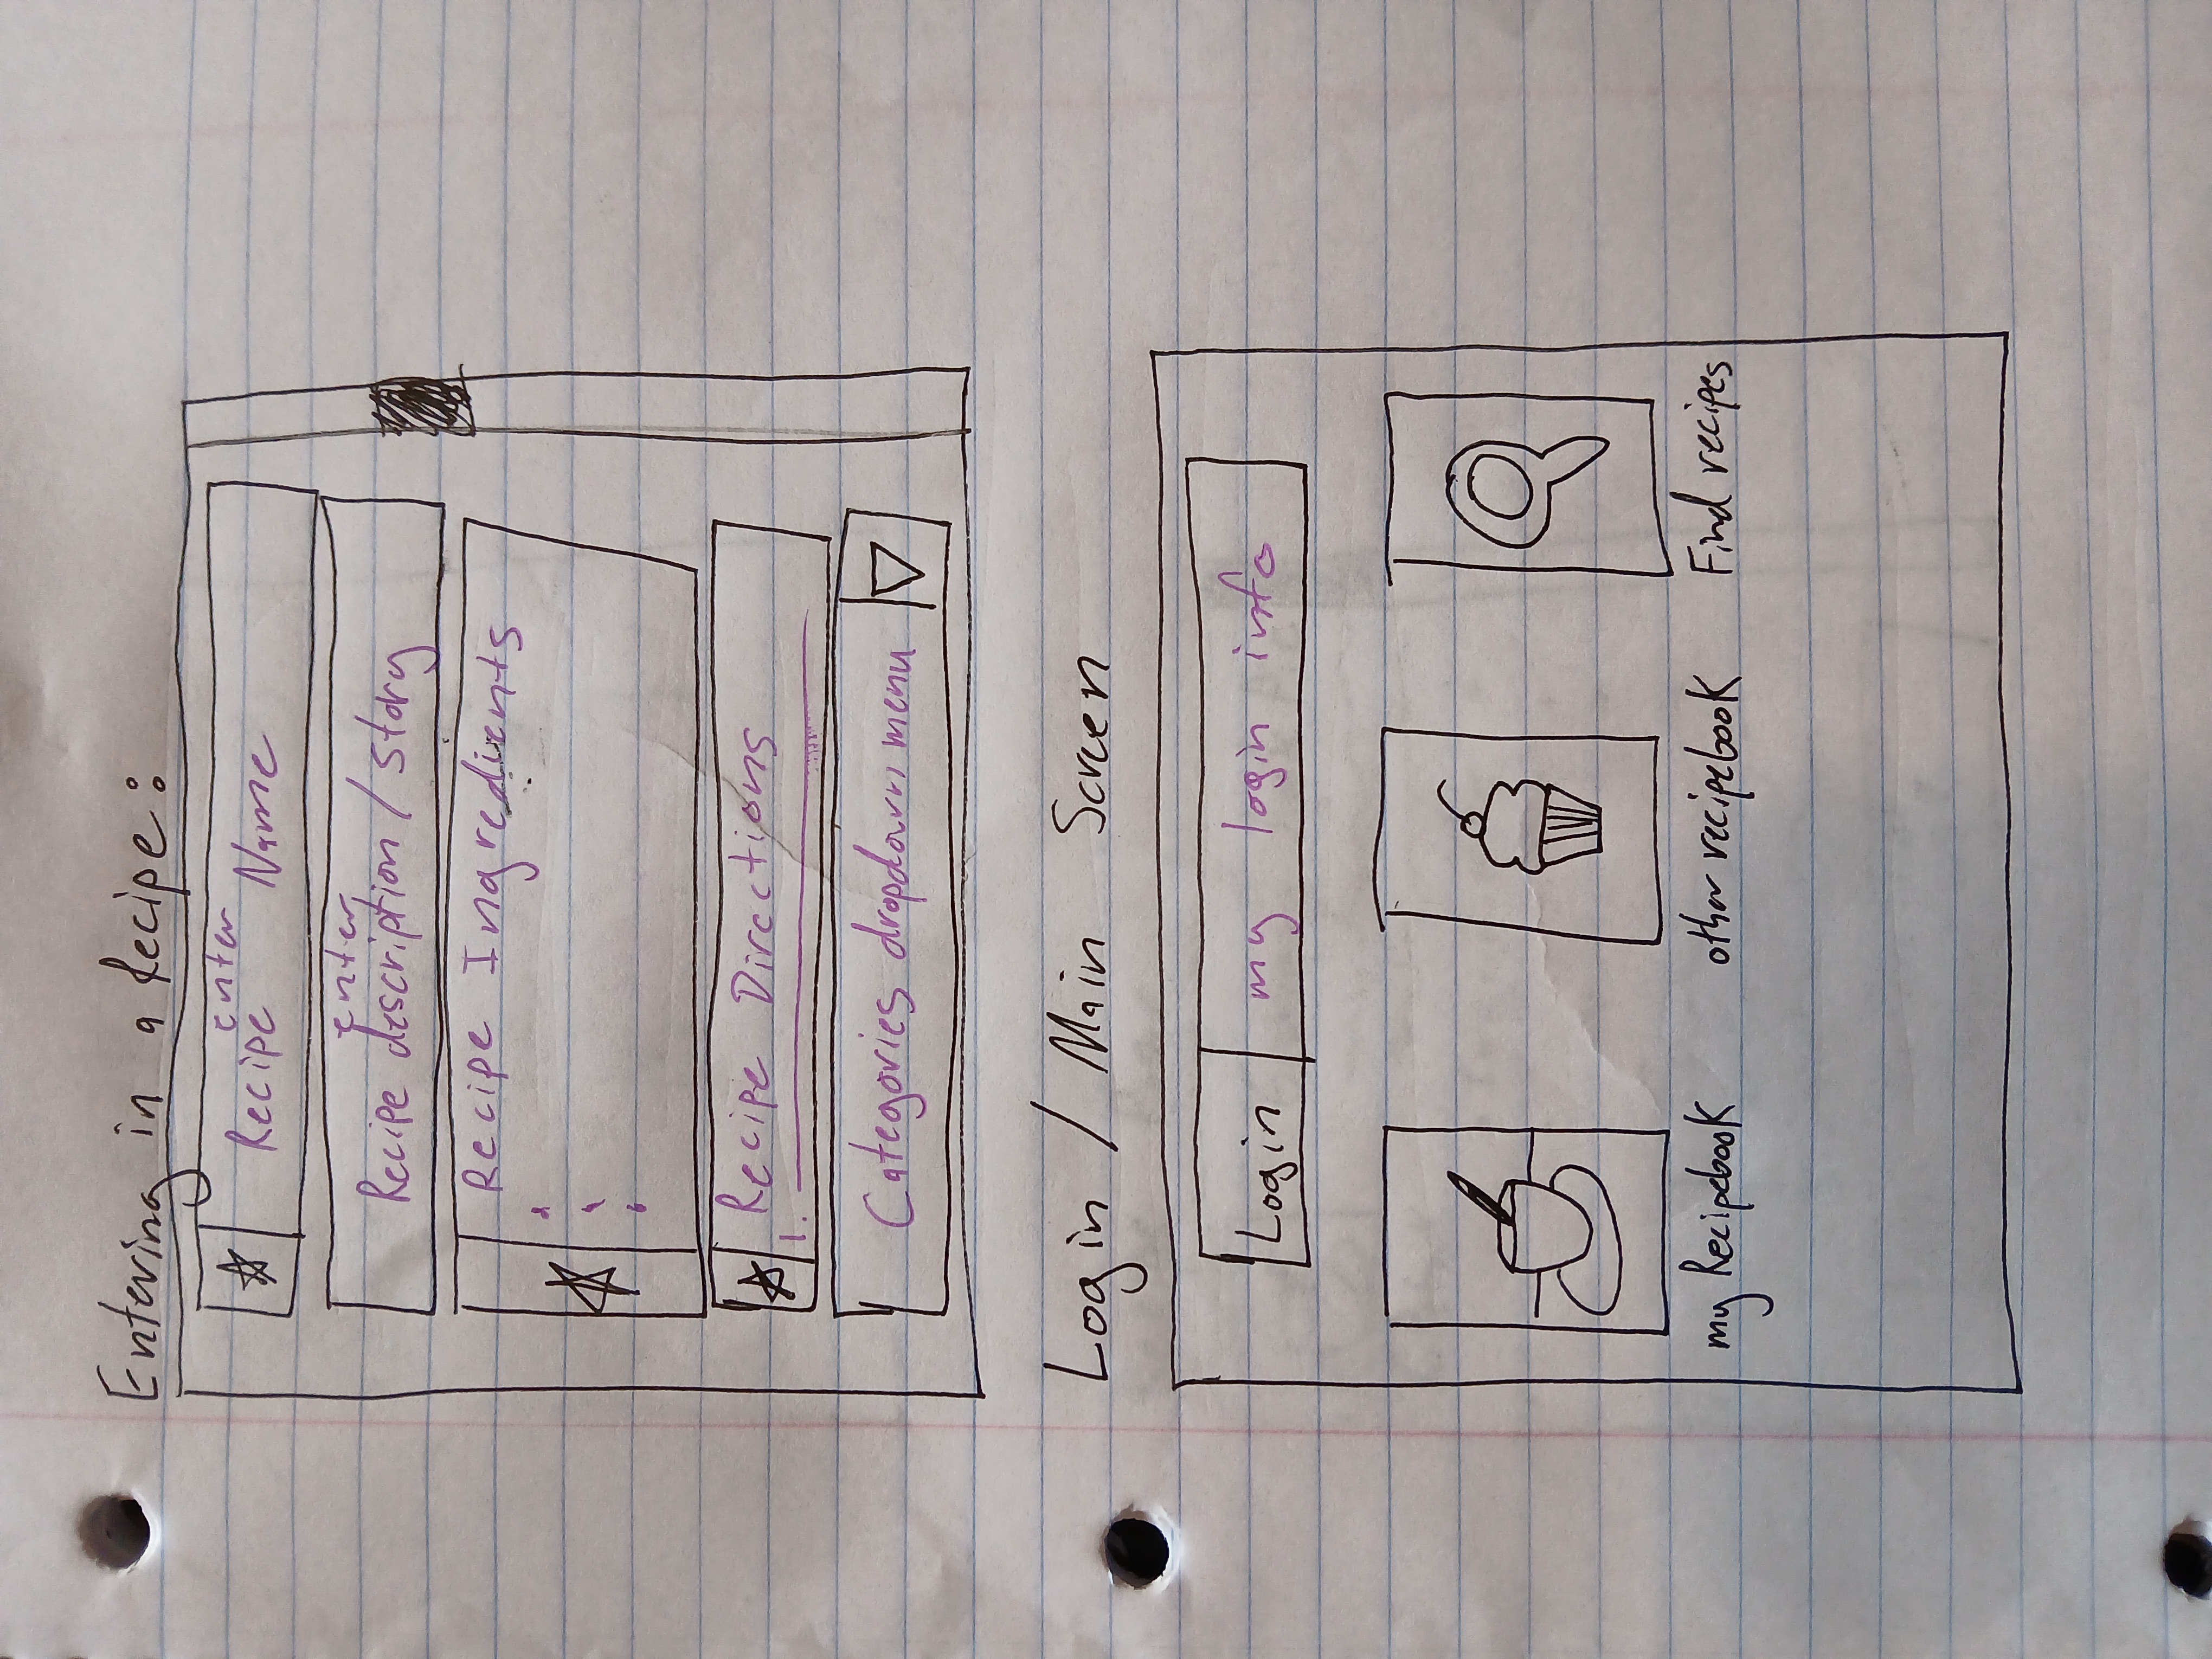 Entering in a Recipe:
enter
Recipe Name
enter
Recipe description / story
Recipe Ingredients
Recipe Directions
1.
Categories dropdown menu
Login / Main Screen
Login my login info
my Recipebook other recipebook Find recipes